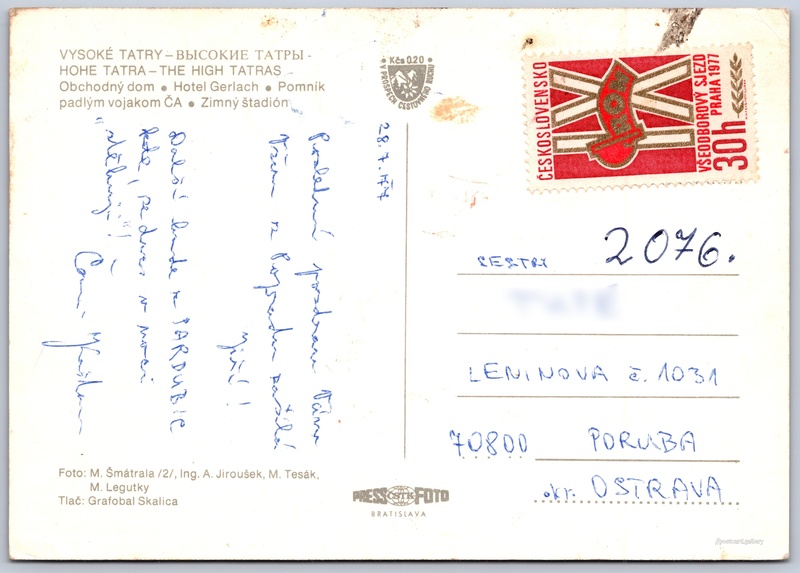 VYSOKÉ TATRY – ВЫСОКИЕ ТАТРЫ -
HOHE TATRA – THE HIGH TATRAS
Obchodný dom • Hotel Gerlach • Pomník
padlým vojakom ČA • Zimný štadión
Kčs 0.20
V PROSPECH CESTOVNÉHO RUCHU
ČESKOSLOVENSKO
IX
ROH
VŠEODBOROVÝ SJEZD
PRAHA 1977
30h
28.7.1977
Poslední pozdrav Vám
Všem z Popradu zasílá
Jiří!
Další bude z PARDUBIC
kde, se dnes v noci
"
!
SESTRY
2076.
LENINOVA č. 1031
70800 PORUBA
okr. OSTRAVA
Foto: M. Šmátrala /2/, Ing. A. Jiroušek, M. Tesák,
M. Legutky
Tlač: Grafobal Skalica
PRESS ČSTK FOTO
BRATISLAVA
@postcard.gallery